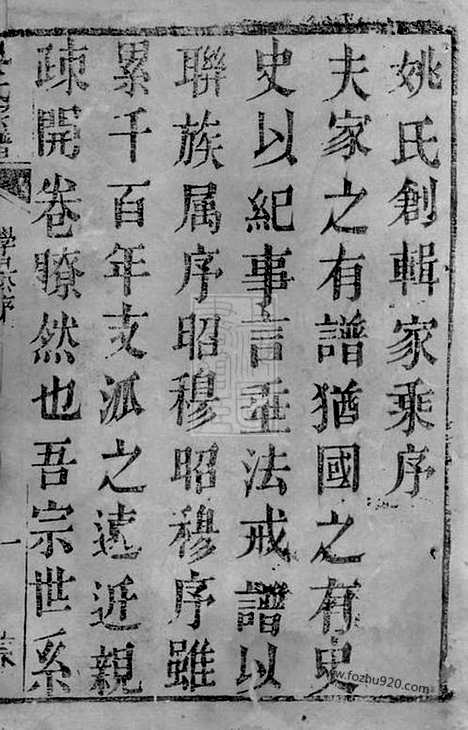 姚氏創輯家乘序
夫家之有譜猶國之有史
史以紀事言垂法戒譜以
聯族属序昭穆昭穆序雖
累千百年支派之遠近親
疎開卷瞭然也吾宗世系
www.fozhu920.com